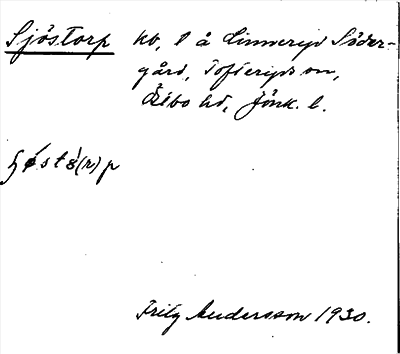 Sjöstorp hb, t å Linneryd Söder-
gård, Tofteryds sn,
Östbo hd, Jönk. l.
ʃǿstå̀(r)p
Fritz Andersson 1930.